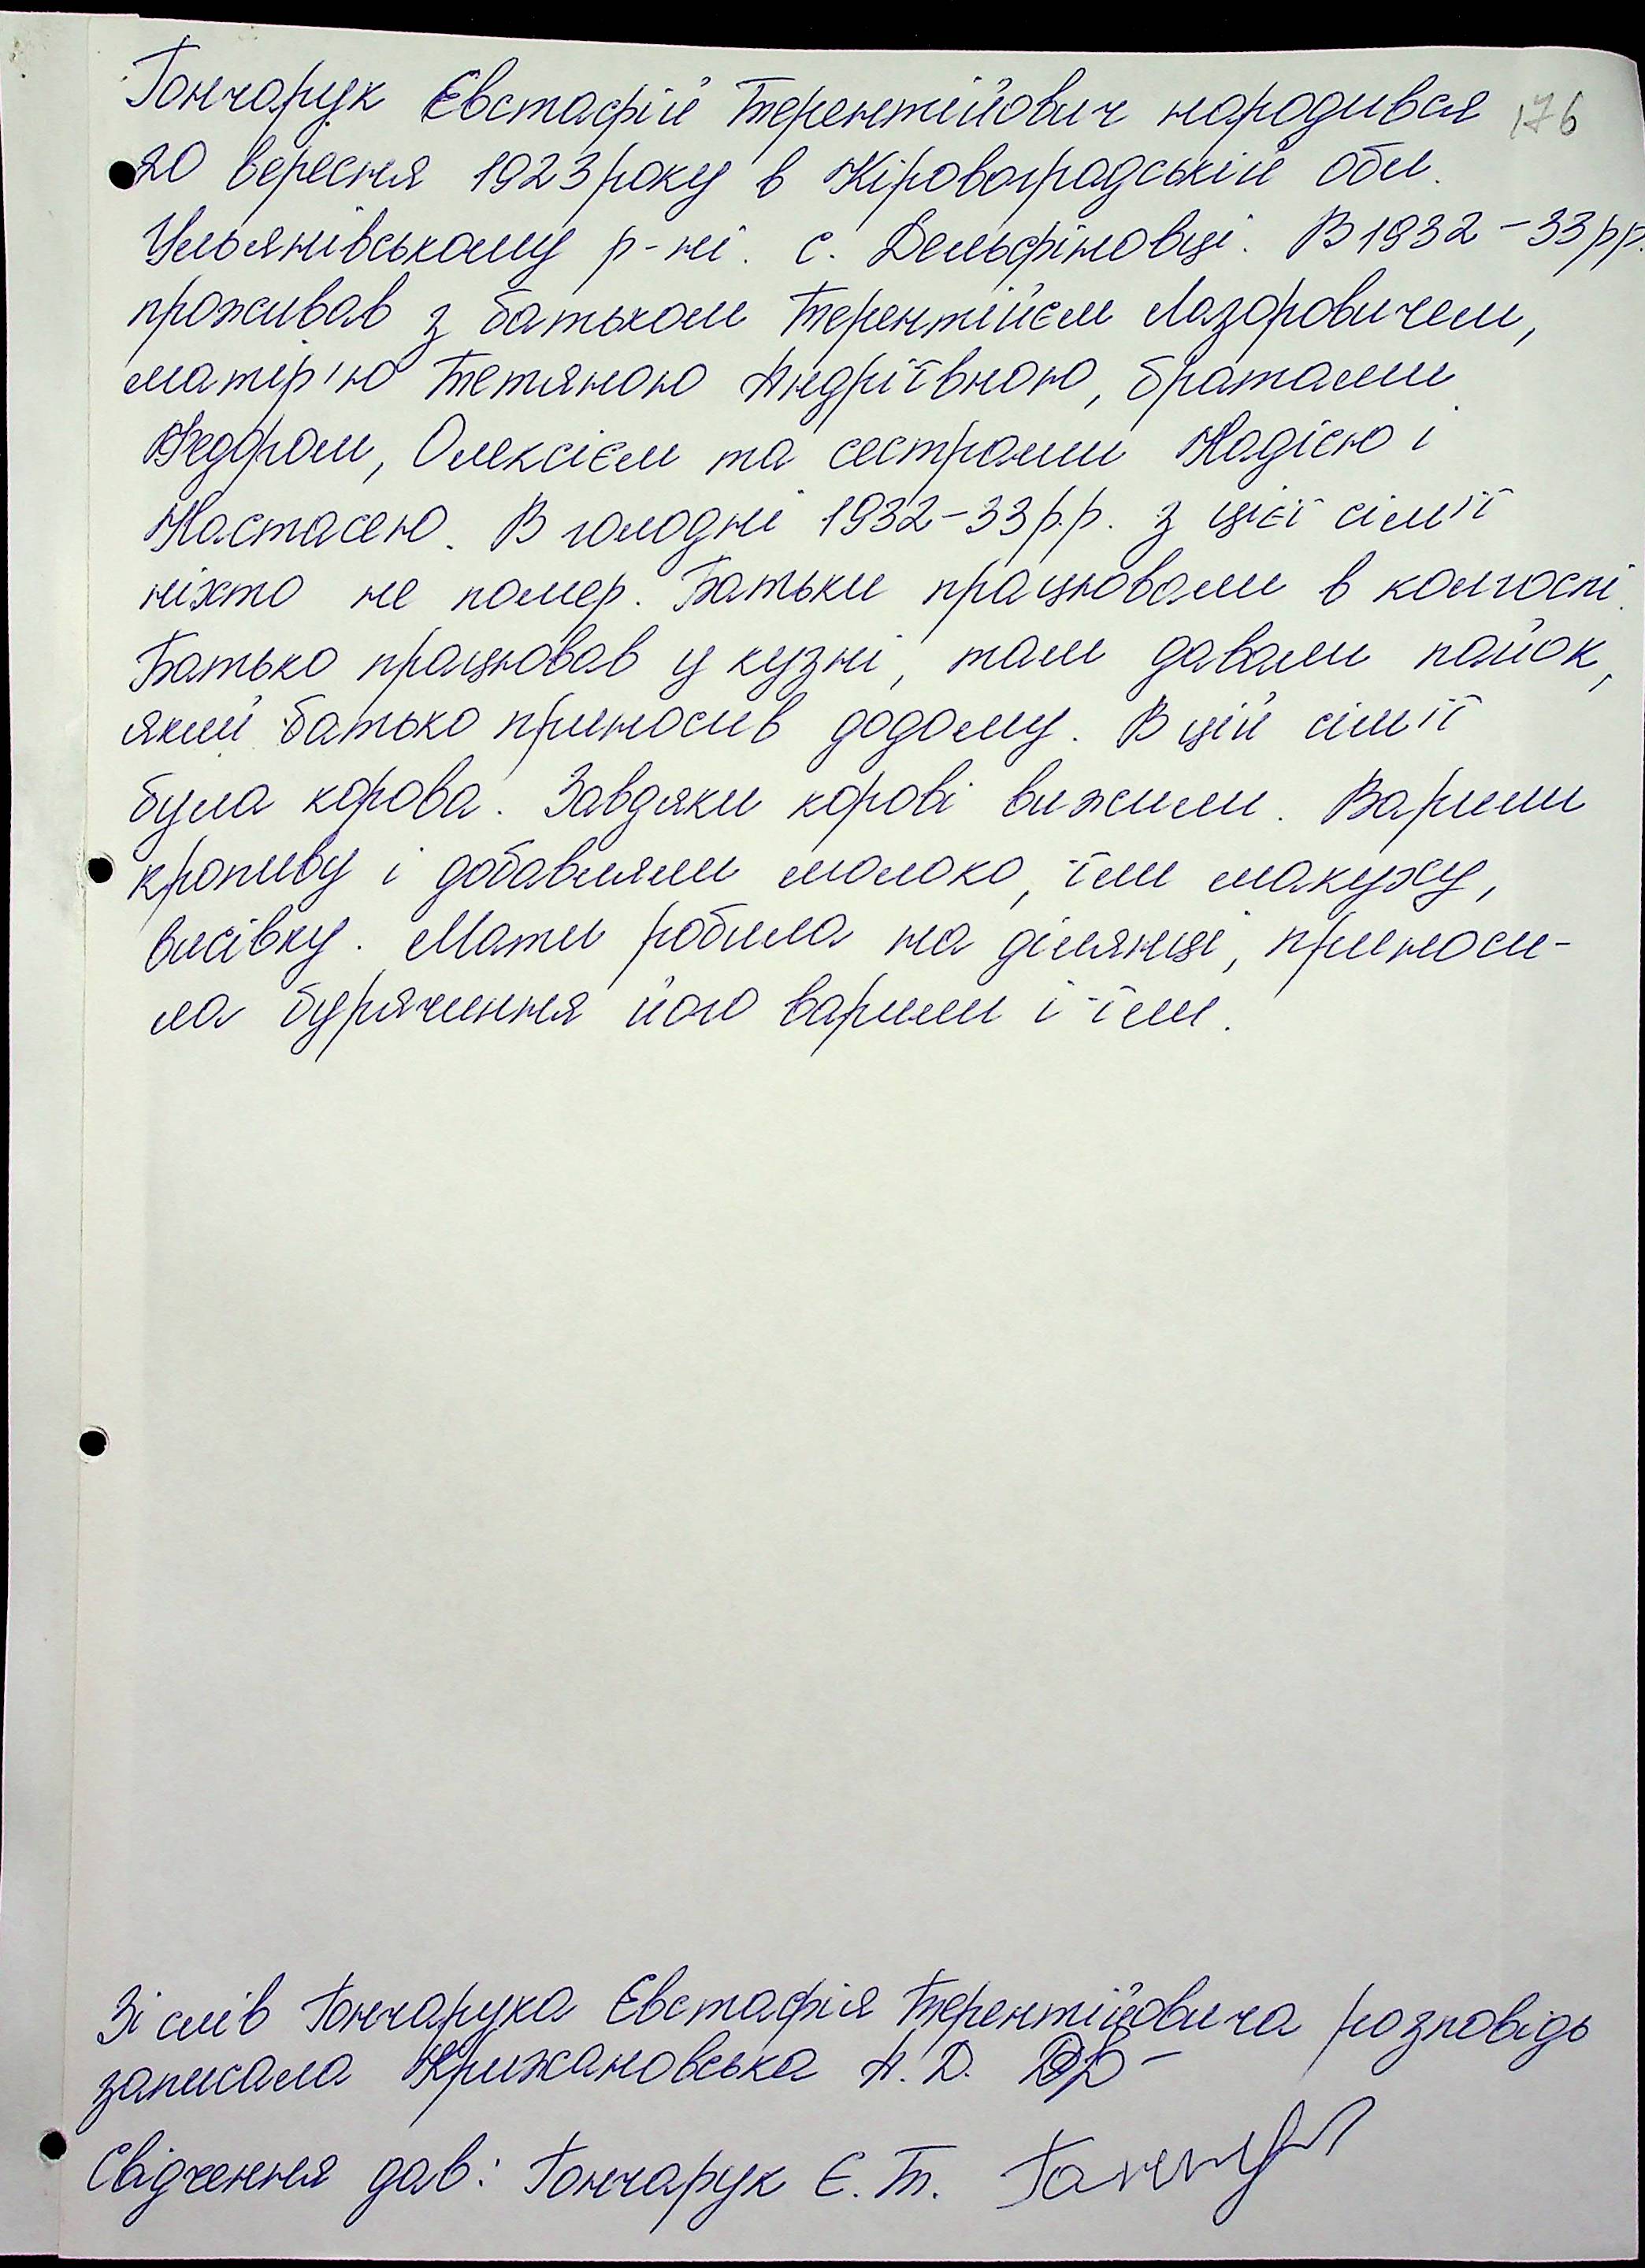 Гончарук Євстафій Терентійович народився 176
20 вересня 1923 року в Кіровоградській обл.
Ульянівському р-ні. с. Дельфіновці. В 1932-33 рр.
проживав з батьком Терентійєм Лазоровичем,
матір'ю Тетяною Андріївною, братами
Федором, Олексієм та сестрами Надією і
Настасею. В голодні 1932-33 р.р. з цієї сім'ї
ніхто не помер. Батьки працювали в колгоспі.
Батько працював у кузні, там давали пайок,
який батько приносив додому. В цій сім'ї
була корова. Завдяки корові вижили. Варили
кропиву і добавляли молоко, їли макуху,
висівку. Мати робила на ділянці, приноси-
ла бурячиння його варили і їли.
Зі слів Гончарука Євстафія Терентійовича розповідь
записала Крижановська А. Д.
Свідчення дав: Гончарук Є. Т.